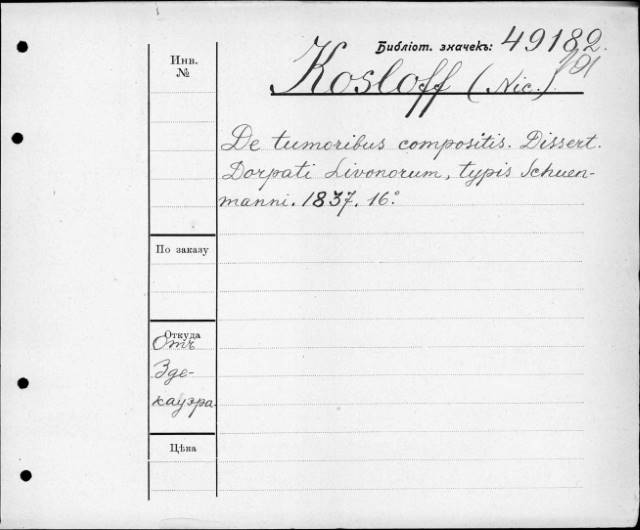 Библіот. значекъ: 49182
191
Инв.
№
Kosloff (Nic.)
De tumoribus compositis. Dissert.
Dorpati Livonorum, typis Schuen-
manni. 1837. 16°
По заказу
Откуда
Отъ
Эде-
кауэра.
Цѣна